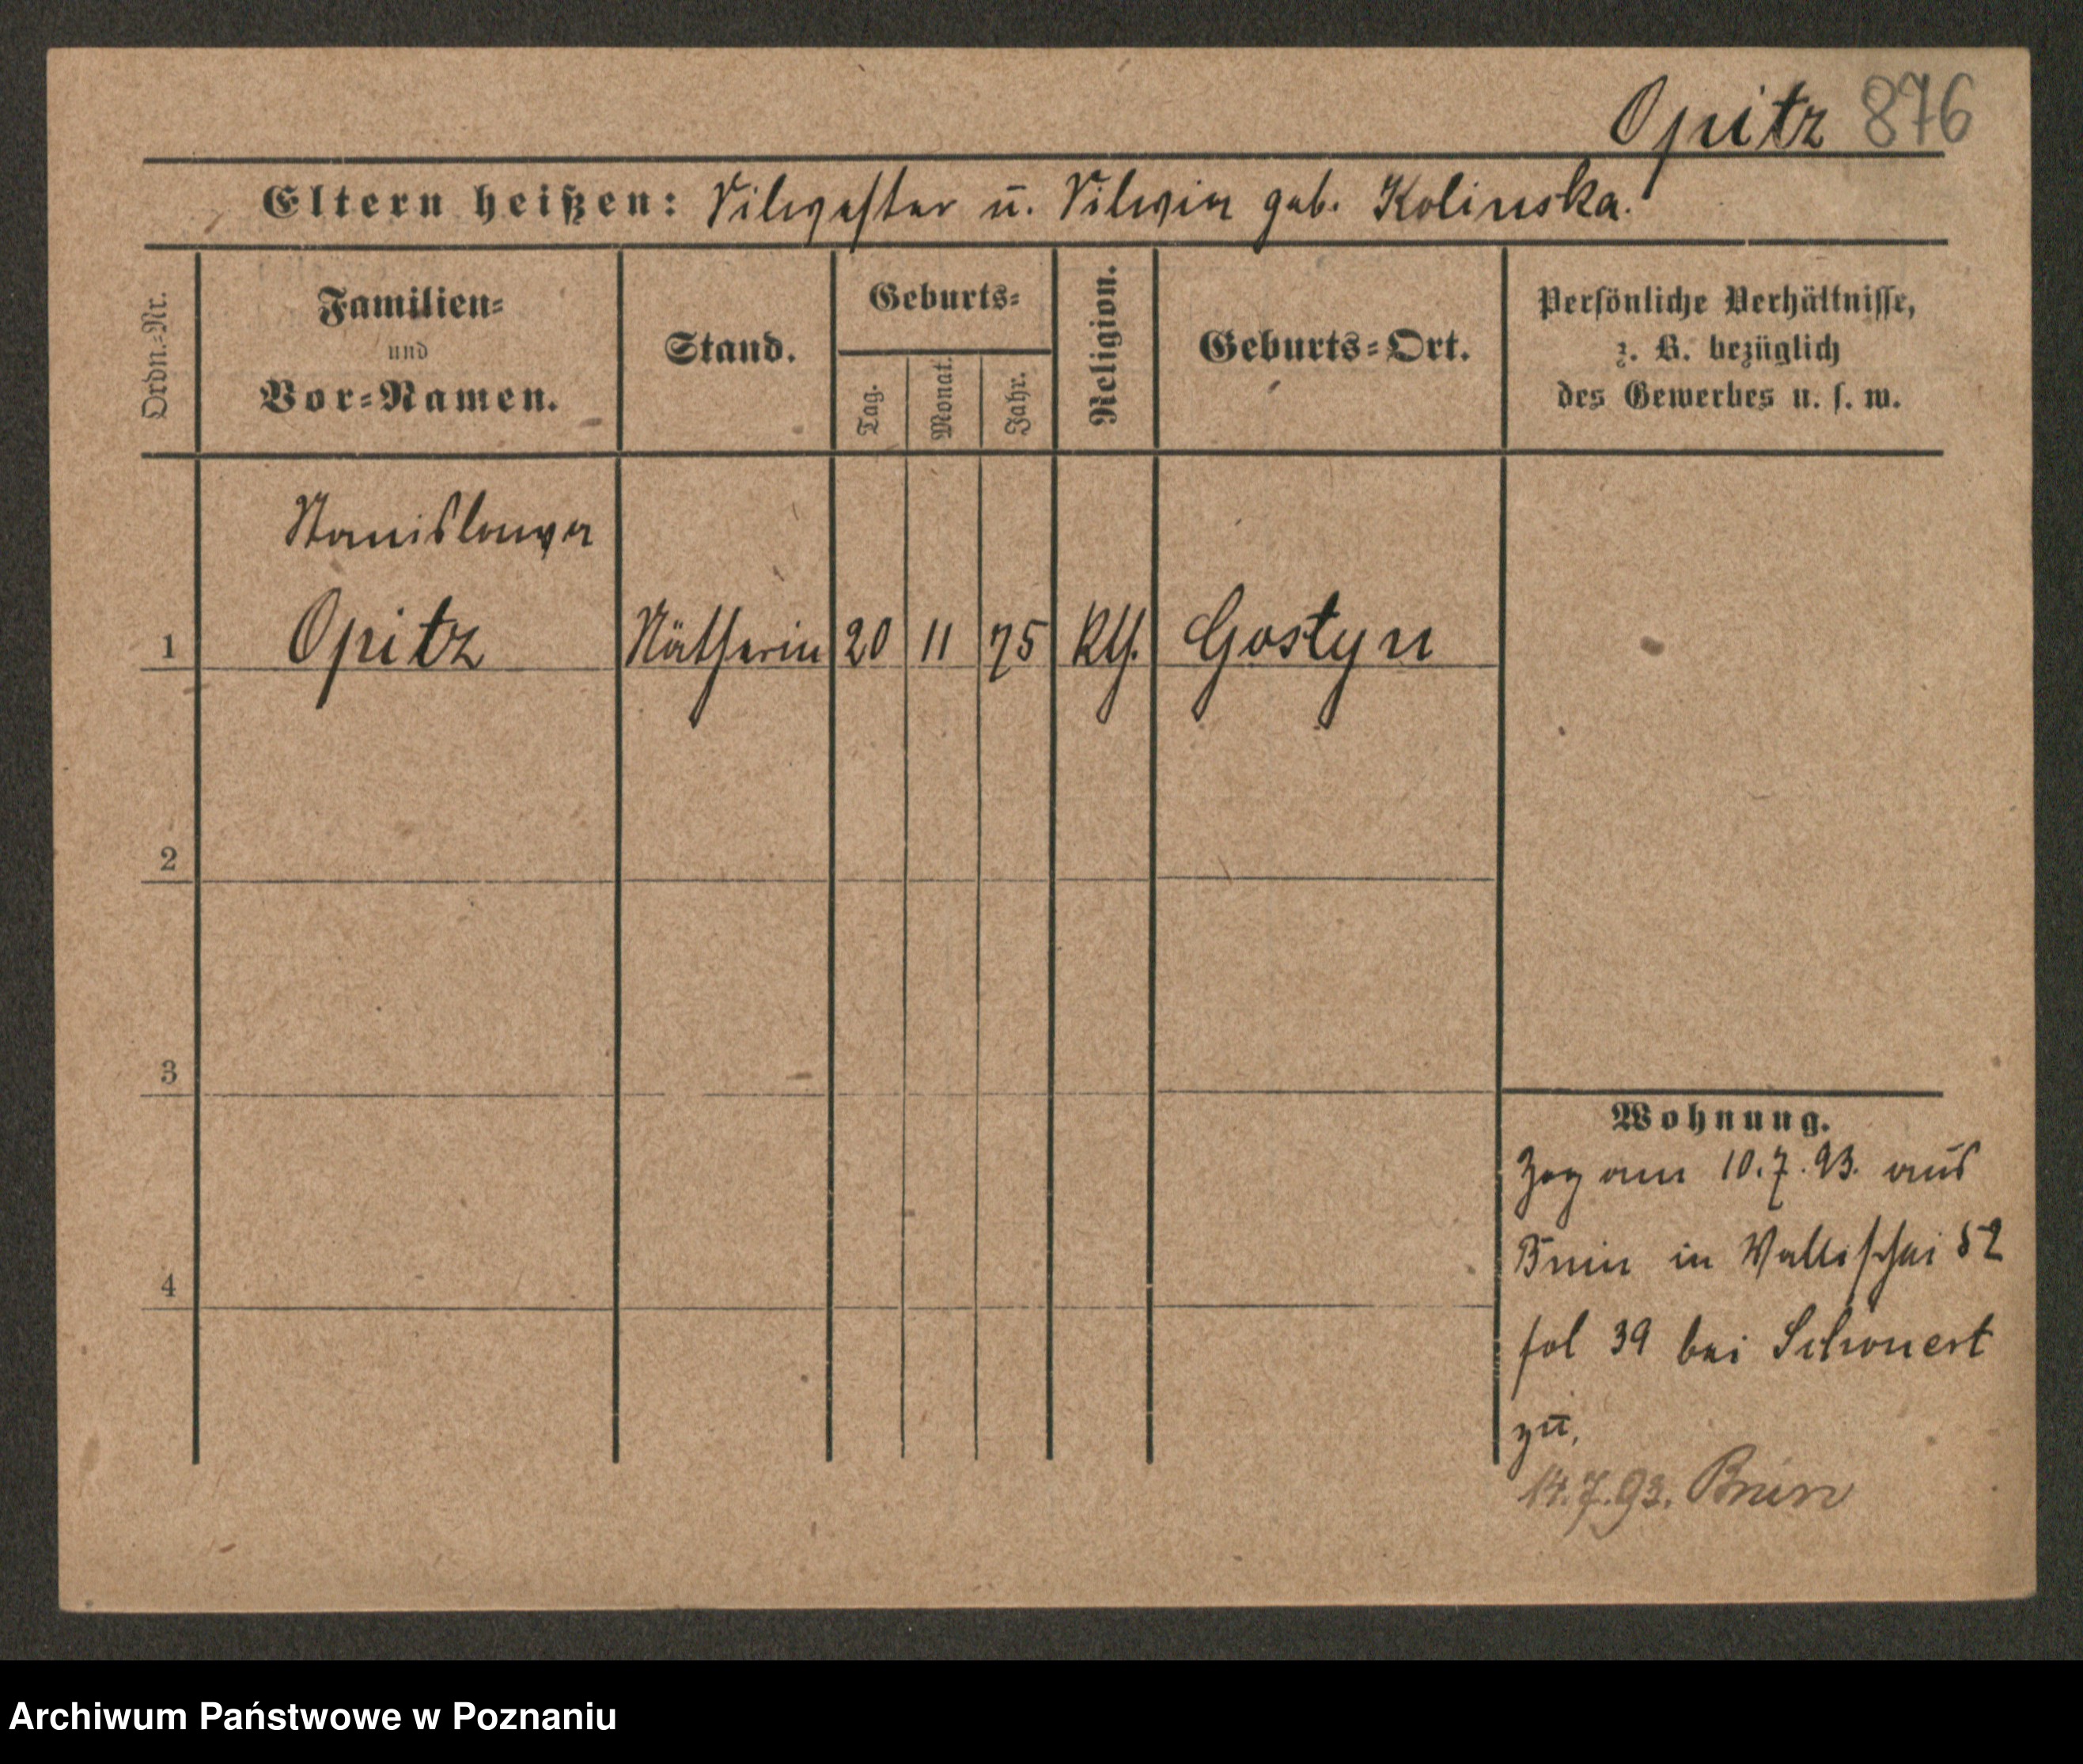 Opitz 876
Eltern heißen: Silvester u. Silvia geb. Kolinska.
Ordn.-Nr.
Familien-
und
Vor-Namen.
Stand.
Geburts-
Tag.
Monat.
Jahr.
Religion.
Geburts-Ort.
Persönliche Verhältnisse,
z. B. bezüglich
des Gewerbes u. s. w.
Stanislawa
1 Opitz Nätherin 20 11 75 kth. Gostyn
2
3
4
Wohnung.
Zog am 10.7.93. aus
Bnin in Wallischei 52
fol 39 bei Schonert
zu.
14.7.93. Bnin
Archiwum Państwowe w Poznaniu